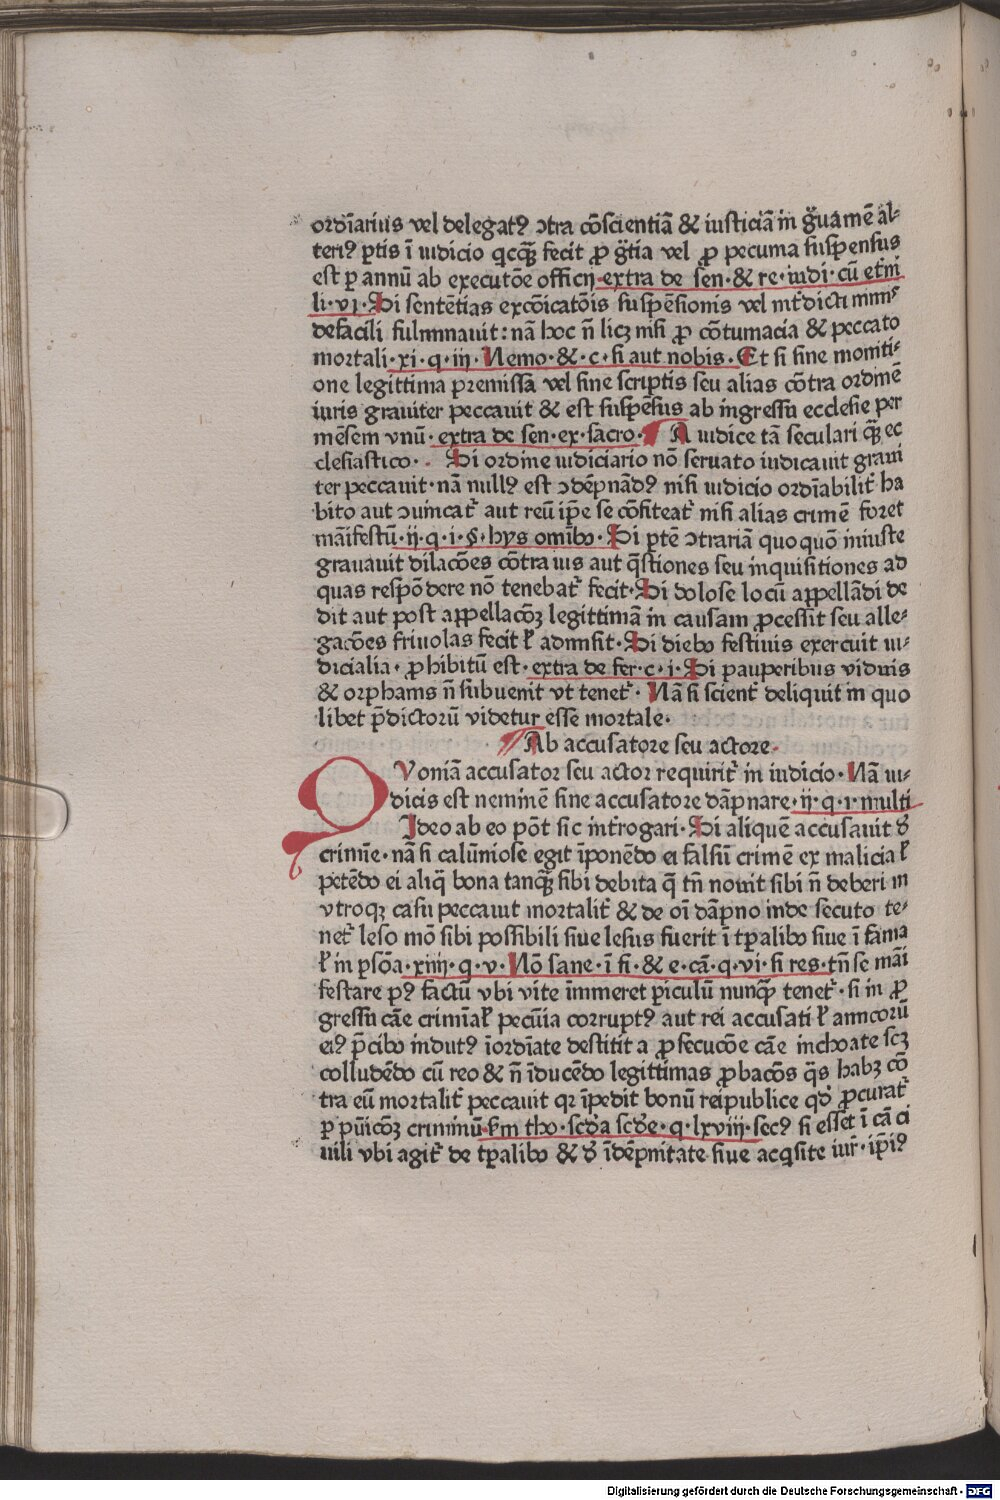 ordīarius vel delegatꝰ ↄtra cōscientiā & iusticiā in g̃uamē al⸗
teriꝰ ꝑtis ī iudicio qicq̄ꝫ fecit ꝓ g̃tia vel ꝓ pecunia suspensus
est ꝑ annū ab executōe officij·extra de sen·& re·iudi·cū et̄ni
li·vi·Si sentētias excōicatōis suspēsionis vel int̄dicti nimis
defacili fulminauit: nā hoc n̄ licꝫ nisi ꝓ cōtumacia & peccato
mortali·xi·q·iij·Nemo·&·c·si aut nobis·Et si sine moniti⸗
one legittima premissa vel sine scriptis seu alias cōtra ordinē
iuris grauiter peccauit & est suspēsus ab ingressu ecclesie per
mēsem vnū·extra de sen·ex·sacro·¶ A iudice tā seculari q̄ꝫ ec
clesiastico·. Si ordine iudiciario nō seruato iudicauit graui
ter peccauit·nā nullꝰ est ↄdēpnādꝰ nisi iudicio ordīabilit̄ ha
bito aut ↄuincat̄ aut reū ip̄e se cōfiteat̄ nisi alias crimē foret
māifestū·ij·q·i·§·hys omībꝰ·Si ꝑtē ↄtrariā quoquō iniuste
grauauit dilacōes cōtra ius aut q̄stiones seu inquisitiones ad
quas respōdere nō tenebat̄ fecit·Si dolose locū appellādi de
dit aut post appellacōꝫ legittimā in causam ꝓcessit seu alle⸗
gacōes friuolas fecit ł admisit·Si diebꝰ festiuis exercuit iu⸗
dicialia·ꝓhibitū est·extra de fer·c·i·Si pauperibus viduis
& orphanis n̄ subuenit vt tenet̄·Nā si scient̄ deliquit in quo
libet p̄dictorū videtur esse mortale·
¶Ab accusatore seu actore·
QVoniā accusator seu actor requirit̄ in iudicio·Nā iu⸗
dicis est neminē sine accusatore dāpnare·ij·q·i·multi
Ideo ab eo pōt sic int̄rogari·Si aliquē accusauit đ
crimīe·nā si calūniose egit īponēdo ei falsū crimē ex malicia ł
petēdo ei aliq̄ bona tanq̄ꝫ sibi debita q̄ tn̄ nouit sibi n̄ deberi in
vtroqꝫ casu peccauit mortalit̄ & de oī dāpno inde secuto te⸗
net̄ leso mō sibi possibili siue lesus fuerit ī tꝑalibꝰ siue ī fama
ł in ꝑsōa·xiiij·q·v·Nō sane·ī fi·& e·cā·q·vi·si res·tn̄ se māi
festare pꝰ factū vbi vite īmineret ꝑiculū nunq̄ꝫ tenet̄·si in ꝓ
gressu cāe crimīał pecūia corruptꝰ aut rei accusati ł amicorū
eiꝰ p̄cibꝰ indutꝰ īordīate destitit a ꝓsecucōe cāe inchoate scꝫ
colludēdo cū reo & n̄ īducēdo legittimas ꝓbacōs q̄s habꝫ cō
tra eū mortalit̄ peccauit qꝛ īpedit bonū reipublice qđ ꝓcurat̄
ꝑ pūicōꝫ criminū·ẜm tho·scđa scđe·q·lxviij·secꝰ si esset ī cā ci
uili vbi agit̄ de tꝑalibꝰ & đ īdēpnitate siue acq̄site iur̄·ip̄iꝰ
Digitalisierung gefördert durch die Deutsche Forschungsgemeinschaft · DFG